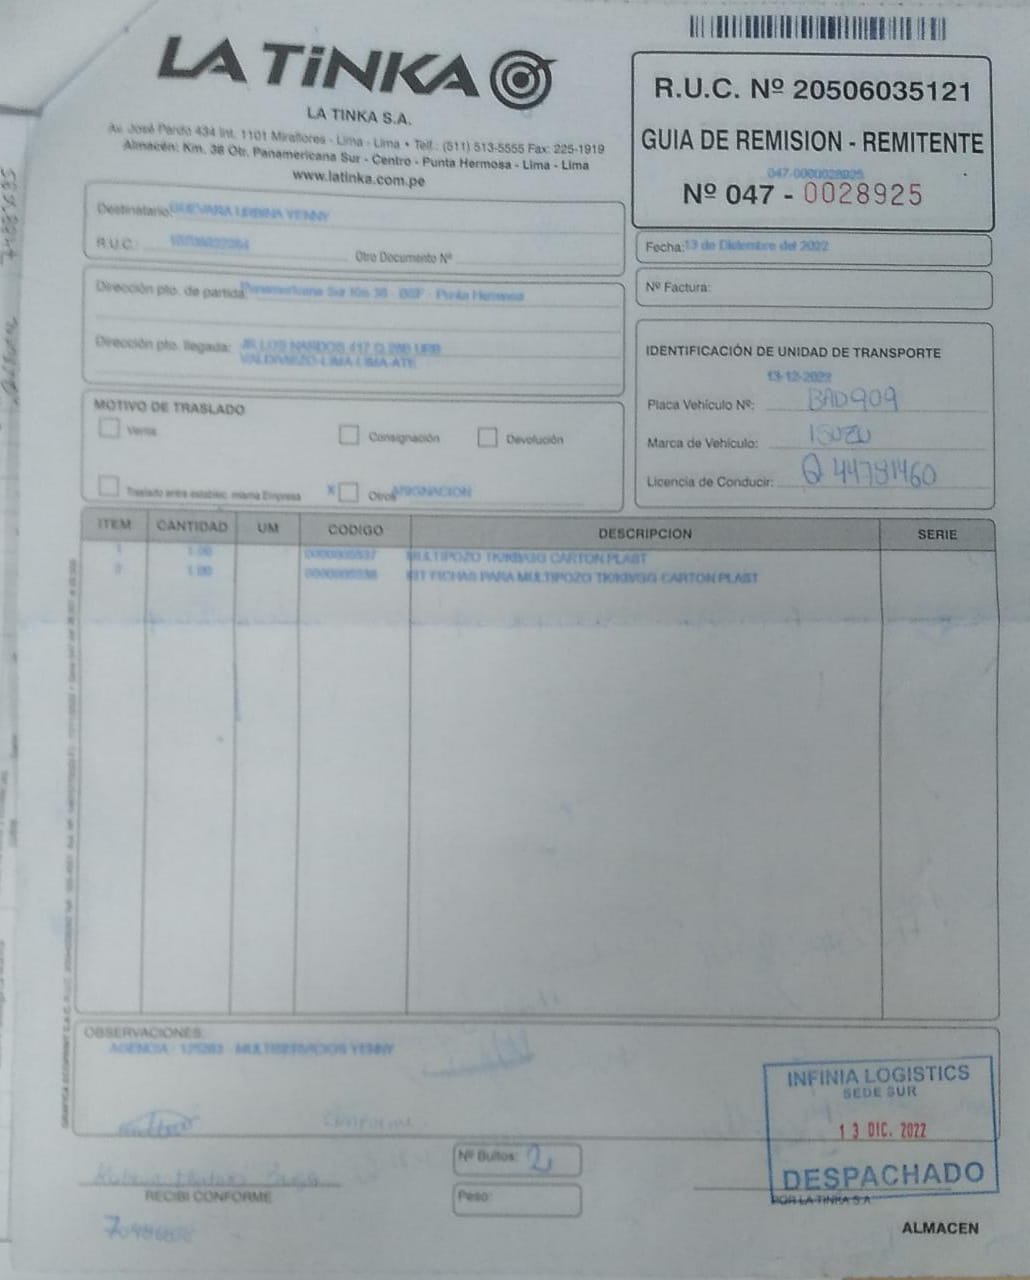 LA TiNKA
LA TINKA S.A.
Av. José Pardo 434 Int. 1101 Miraflores - Lima - Lima • Telf.: (511) 513-5555 Fax: 225-1919
Almacén: Km. 38 Otr. Panamericana Sur - Centro - Punta Hermosa - Lima - Lima
www.latinka.com.pe
R.U.C. Nº 20506035121
GUIA DE REMISION - REMITENTE
047-0000028925
Nº 047 - 0028925
Destinatario: YENNY
R.U.C.:
Otro Documento Nº
Fecha: 13 de Diciembre del 2022
Nº Factura:
Dirección pto. de partida: Panamericana Sur Km 38 - Punta Hermosa
Dirección pto. llegada: JR LOS NARDOS 417
LIMA-LIMA-ATE
IDENTIFICACIÓN DE UNIDAD DE TRANSPORTE
13-12-2022
Placa Vehículo Nº: BAD909
Marca de Vehículo: ISUZU
Licencia de Conducir: Q 44781460
MOTIVO DE TRASLADO
Venta
Consignación
Devolución
Traslado entre establec. misma Empresa
X Otros ASIGNACION
ITEM CANTIDAD UM CODIGO DESCRIPCION SERIE
1 1.00 MULTIPOZO CARTON PLAST
2 1.00 KIT FICHAS PARA MULTIPOZO CARTON PLAST
OBSERVACIONES:
AGENCIA - MULTISERVICIOS YENNY
Conforme
INFINIA LOGISTICS
SEDE SUR
13 DIC. 2022
DESPACHADO
POR LA TINKA S.A.
ALMACEN
Nº Bultos: 2
Peso:
RECIBI CONFORME